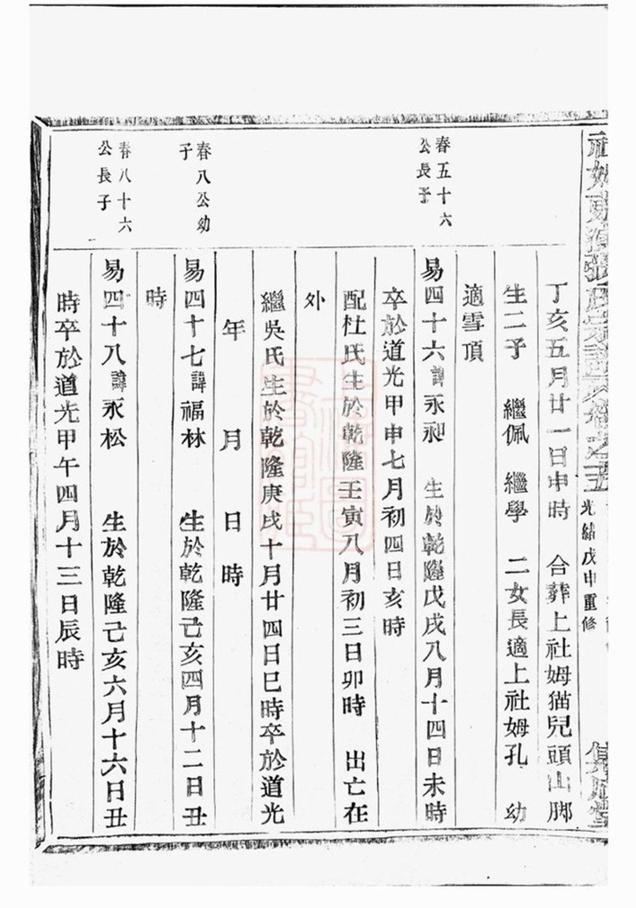 張氏宗譜
光緒戊申重修
丁亥五月廿一日申時 合葬上社姆猫兒頭山脚
生二子 繼佩 繼學 二女長適上社姆孔 幼
適雪頂
春五十六
公長子
易四十六諱永昶 生於乾隆戊戌八月十四日未時
卒於道光甲申七月初四日亥時
配杜氏生於乾隆壬寅八月初三日卯時 出亡在
外
繼吳氏生於乾隆庚戌十月廿四日巳時卒於道光
年 月 日 時
春八公幼
子
易四十七諱福林 生於乾隆己亥四月十二日丑
時
春八十六
公長子
易四十八諱永松 生於乾隆己亥六月十六日丑
時卒於道光甲午四月十三日辰時